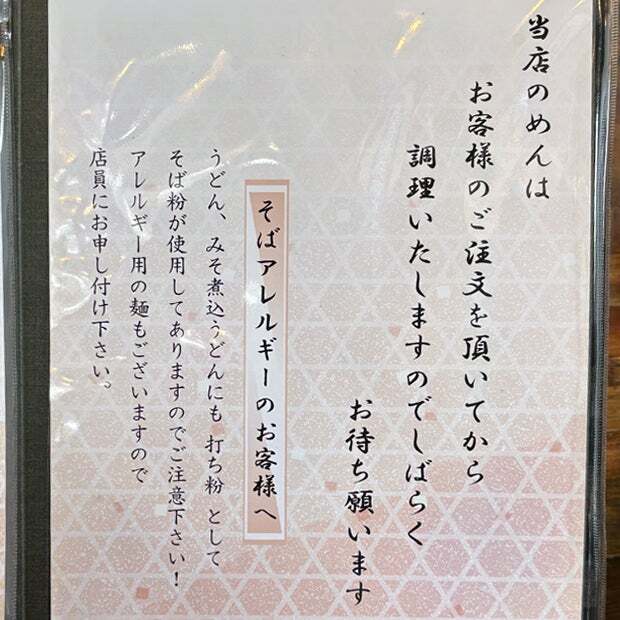 当店のめんは
お客様のご注文を頂いてから
調理いたしますのでしばらく
お待ち願います
そばアレルギーのお客様へ
うどん、みそ煮込うどんにも 打ち粉 として
そば粉が使用してありますのでご注意下さい!
アレルギー用の麺もございますので
店員にお申し付け下さい。